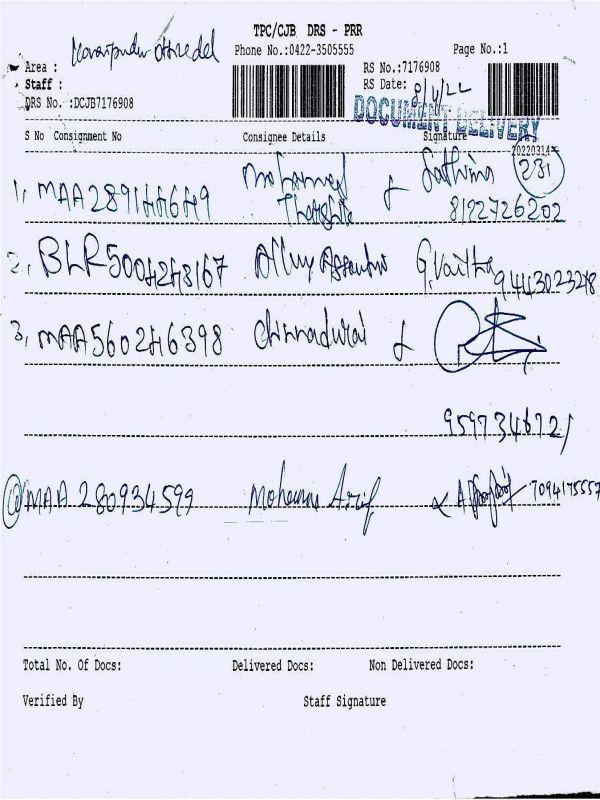 TPC/CJB DRS - PRR
Phone No.:0422-3505555 Page No.:1
Area :
RS No.:7176908
Staff :
RS Date: 8/4/22
DRS No. :DCJB7176908
DOCUMENT DELIVERY
S No Consignment No Consignee Details Signature
20220314
1, MAA289144649 Mohammed Fathima 231
8122726202
2, BLR5004243167 G.Vaitha 9443023218
3, MAA560246398 Chinnadurai
9597346721
4 MAA280934599 Mohamed Arif 7094175557
Total No. Of Docs: Delivered Docs: Non Delivered Docs:
Verified By Staff Signature